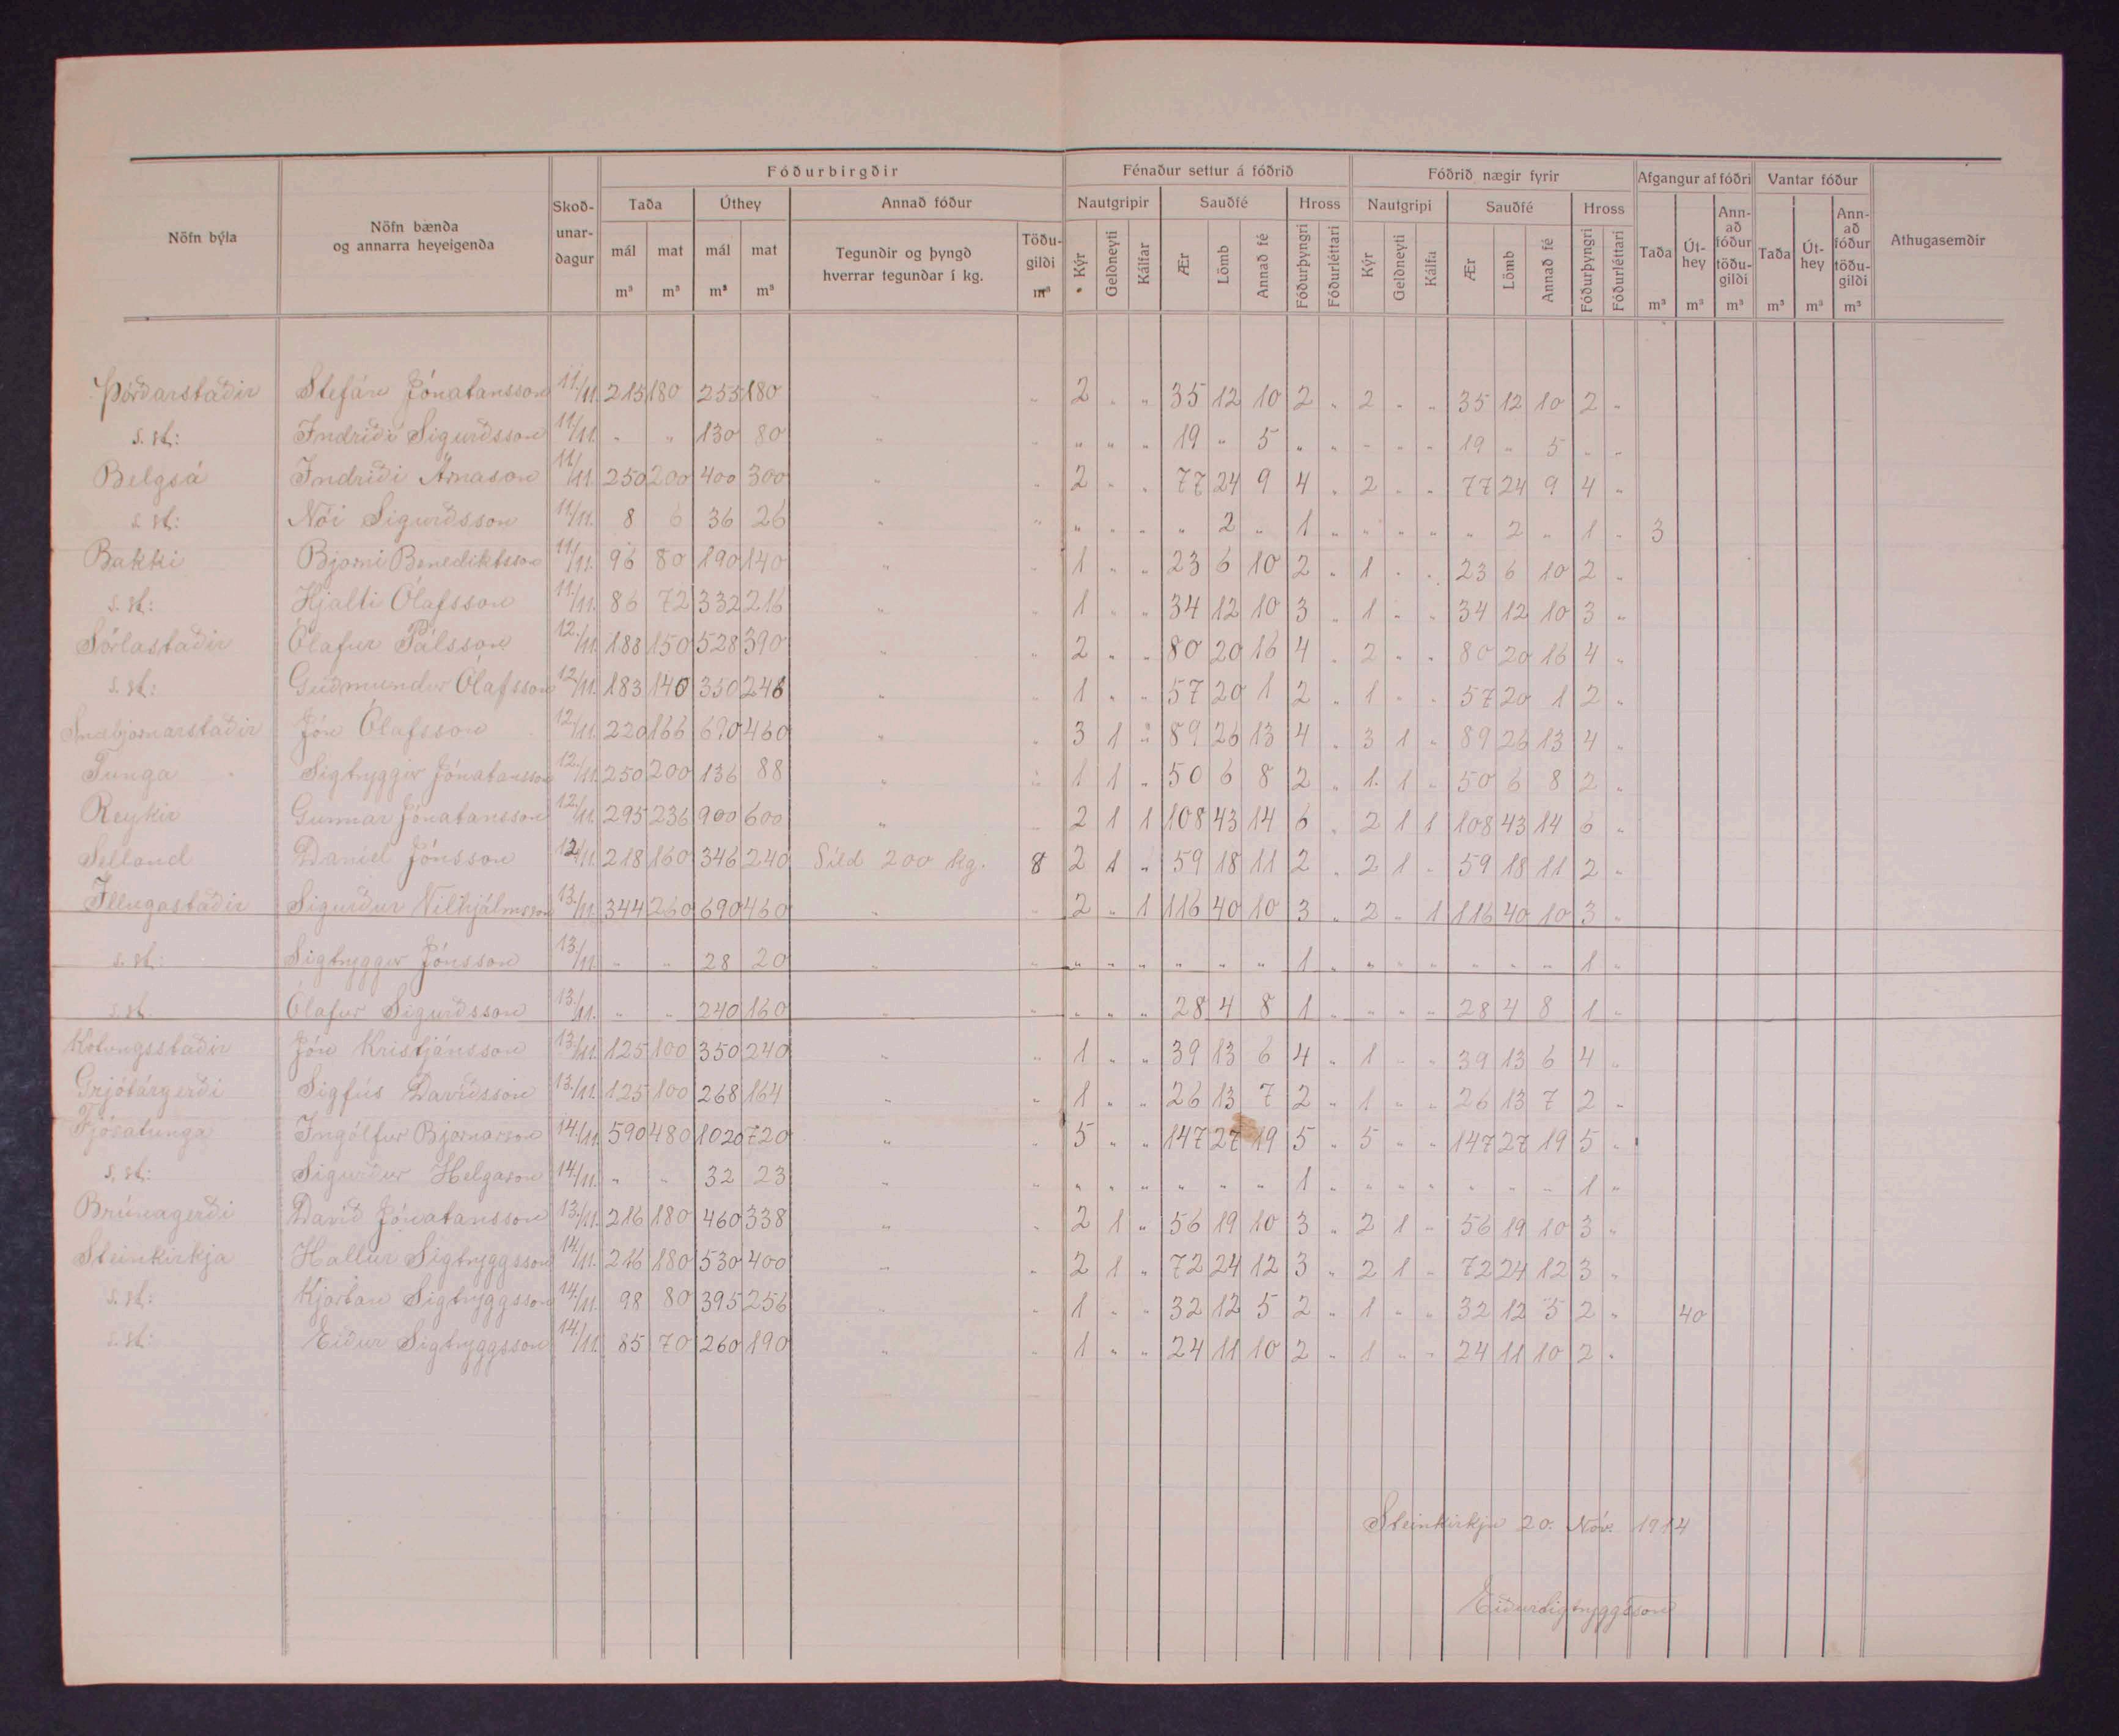 Nöfn býla
Nöfn bænda og annarra heyeigenda
Skoð-unar-dagur
Fóðurbirgðir
Taða
Úthey
Annað fóður
mál m³
mat m³
mál m³
mat m³
Tegundir og þyngd hverrar tegundar í kg.
Töðu-gildi m³
Fénaður settur á fóðrið
Nautgripir
Sauðfé
Hross
Kýr
Geldneyti
Kálfar
Ær
Lömb
Annað fé
Fóðurþyngri
Fóðurléttari
Fóðrið nægir fyrir
Nautgripi
Sauðfé
Hross
Kýr
Geldneyti
Kálfa
Ær
Lömb
Annað fé
Fóðurþyngri
Fóðurléttari
Afgangur af fóðri
Taða m³
Út-hey m³
Ann-að fóður töðu-gildi m³
Vantar fóður
Taða m³
Út-hey m³
Ann-að fóður töðu-gildi m³
Athugasemdir
Þórðarstaðir Stefán Jónatansson 11./11. 215 180 255 180 „ „ 2 „ „ 35 12 10 2 „ 2 „ „ 35 12 10 2 „
s. st: Indriði Sigurðsson 11/11. „ „ 130 80 „ „ „ „ „ 19 „ 5 „ „ „ „ „ 19 „ 5 „ „
Belgsá Indriði Árnason 11/11. 250 200 400 300 „ „ 2 „ „ 77 24 9 4 „ 2 „ „ 77 24 9 4 „
s. st: Nói Sigurðsson 11/11. 8 6 36 26 „ „ „ „ „ „ 2 „ 1 „ „ „ „ „ 2 „ 1 „ 3
Bakki Bjarni Benediktsson 11/11. 96 80 190 140 „ „ 1 „ „ 23 6 10 2 „ 1 „ „ 23 6 10 2 „
s. st: Hjalti Ólafsson 11./11. 86 72 332 216 „ „ 1 „ „ 34 12 10 3 „ 1 „ „ 34 12 10 3 „
Sörlastaðir Ólafur Pálsson 12./11. 183 150 528 390 „ „ 2 „ „ 80 20 16 4 „ 2 „ „ 80 20 16 4 „
s. st: Guðmundur Ólafsson 12/11. 183 140 350 246 „ „ 1 „ „ 57 20 1 2 „ 1 „ „ 57 20 1 2 „
Snæbjarnarstaðir Jón Ólafsson 12./11. 220 166 690 460 „ „ 3 1 „ 89 26 13 4 „ 3 1 „ 89 26 13 4 „
Tunga Sigtryggur Jónatansson 12./11. 250 200 136 88 „ „ 1 1 „ 50 6 8 2 „ 1 1 „ 50 6 8 2 „
Reykir Gunnar Jónatansson 12./11. 295 236 900 600 „ „ 2 1 1 108 43 14 6 „ 2 1 1 108 43 14 6 „
Selland Daníel Jónsson 12/11. 218 160 346 240 Síld 200 kg. 8 2 1 „ 59 18 11 2 „ 2 1 „ 59 18 11 2 „
Illugastaðir Sigurður Vilhjálmsson 13./11. 344 260 690 460 „ „ 2 „ 1 116 40 10 3 „ 2 „ 1 116 40 10 3 „
s. st: Sigtryggur Jónsson 13./11. „ „ 28 20 „ „ „ „ „ „ „ „ 1 „ „ „ „ „ „ „ 1 „
s. st. Ólafur Sigurðsson 13./11. „ „ 240 160 „ „ „ „ „ 28 4 8 1 „ „ „ „ 28 4 8 1 „
Kotungsstaðir Jón Kristjánsson 13./11. 125 100 350 240 „ „ 1 „ „ 39 13 6 4 „ 1 „ „ 39 13 6 4 „
Grjótárgerði Sigfús Davíðsson 13./11. 125 100 268 164 „ „ 1 „ „ 26 13 7 2 „ 1 „ „ 26 13 7 2 „
Fjósatunga Ingólfur Bjarnarson 14./11. 590 480 1020 720 „ „ 5 „ „ 147 27 19 5 „ 5 „ „ 147 27 19 5 „
s. st: Sigurður Helgason 14/11. „ „ 32 23 „ „ „ „ „ „ „ „ 1 „ „ „ „ „ „ „ 1 „
Brúnagerði Davíð Jónatansson 13./11. 216 180 460 338 „ „ 2 1 „ 56 19 10 3 „ 2 1 „ 56 19 10 3 „
Steinkirkja Hallur Sigtryggsson 14./11. 216 180 530 400 „ „ 2 1 „ 72 24 12 3 „ 2 1 „ 72 24 12 3 „
s. st: Kjartan Sigtryggsson 14./11. 98 80 395 256 „ „ 1 „ „ 32 12 5 2 „ 1 „ „ 32 12 5 2 „ 40
s. st: Eiður Sigtryggsson 14./11. 85 70 260 190 „ „ 1 „ „ 24 11 10 2 „ 1 „ „ 24 11 10 2 „
Steinkirkju 20. Nóv. 1914
Eiður Sigtryggsson